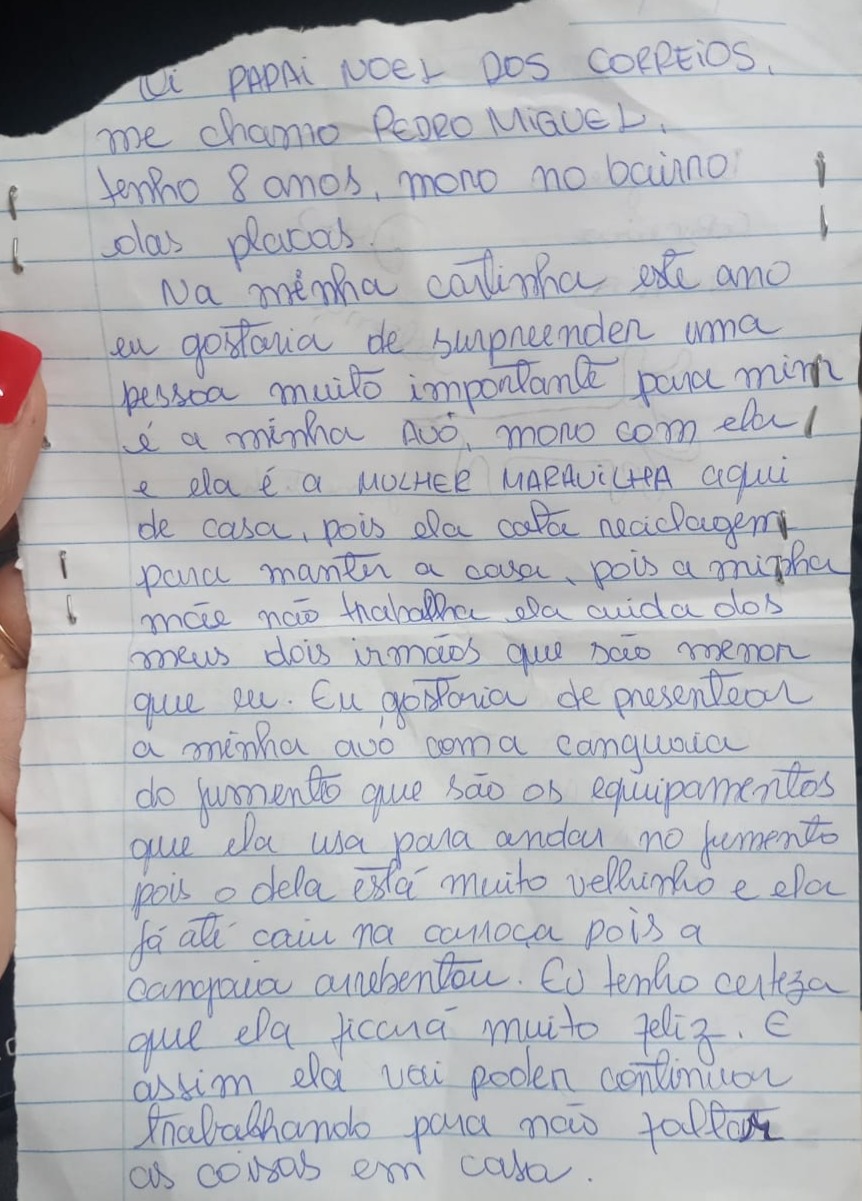 Oi PAPAi NOEL DOS CORREiOS.
me chamo PEDRO MiGUEL.
tenho 8 anos, moro no bairro
das placas.
Na minha cartinha este ano
eu gostaria de surpreender uma
pessoa muito importante para mim
é a minha AVÓ, moro com ela
e ela é a MULHER MARAViLHA aqui
de casa, pois ela cata reciclagem
para manter a casa, pois a minha
mãe não trabalha ela cuida dos
meus dois irmãos que são menor
que eu. Eu gostaria de presentear
a minha avó com a canguaia
do jumento que são os equipamentos
que ela usa para andar no jumento
pois o dela está muito velhinho e ela
já até caiu na carroça pois a
cangaia arrebentou. Eu tenho certeza
que ela ficará muito feliz. E
assim ela vai poder continuar
trabalhando para não faltar
as coisas em casa.